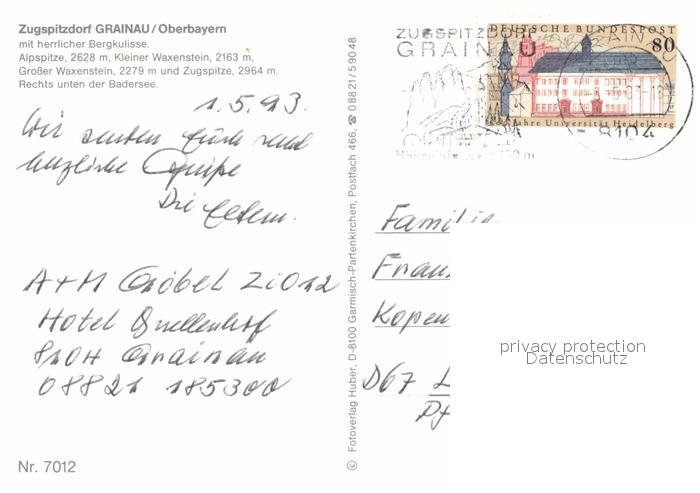 Zugspitzdorf GRAINAU/Oberbayern
mit herrlicher Bergkulisse.
Alpspitze, 2628 m, Kleiner Waxenstein, 2163 m,
Großer Waxenstein, 2279 m und Zugspitze, 2964 m.
Rechts unten der Badersee.
1.5.93.
Wir senden Euch
herzliche Grüße
Die Eltern.
A+M Göbel Zi 012
Hotel Quellenhof
8104 Grainau
08821 185300
Nr. 7012
© Fotoverlag Huber, D-8100 Garmisch-Partenkirchen, Postfach 466, ☎ 08821/59048
ZUGSPITZDORF
GRAINAU
DEUTSCHE BUNDESPOST
80
Jahre Universität Heidelberg
8104
Familie
Franz
Kopen
D67 L
Pf
privacy protection
Datenschutz